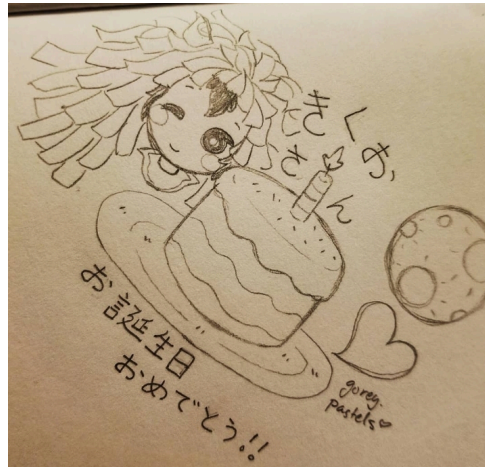 きくお、
さん
お誕生日
おめでとう!!
gorey.
pastels♡